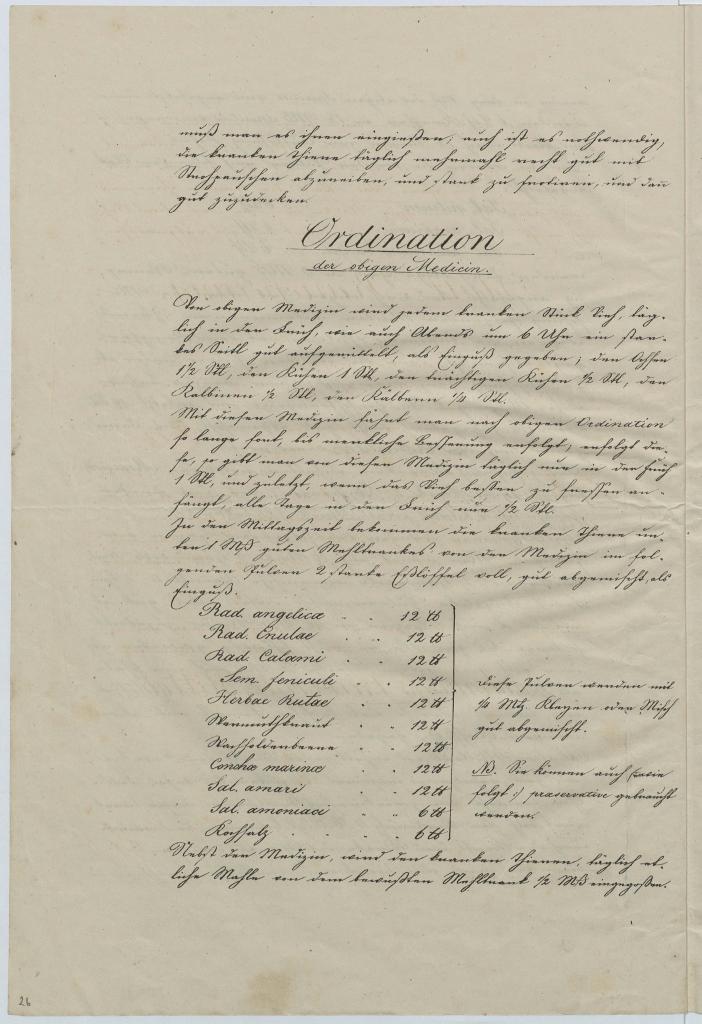 muß man es ihnen eingießen; auch ist es nothwendig,
die kranken Thiere täglich mehrmahl recht gut mit
Strohpauschen abzureiben, und stark zu frotiren, und dan̅
gut zuzudecken.
Ordination
der obigen Medicin.
Von obigen Medizin wird jedem kranken Stück Vieh, täg-
lich in der Früh, wie auch Abends um 6 Uhr ein star-
kes Seitl gut aufgerüttelt, als Einguß gegeben; den Ochsen
1½ Stl, den Kühen 1 Stl, den trächtigen Kühen ½ Stl, den
Kalbinen ½ Stl, den Kälbern ¼ Stl.
Mit dieser Medizin fährt man nach obigen Ordination
so lange fort, bis merkliche Besserung erfolgt; erfolgt die-
se, so gibt man von dieser Medizin täglich nur in der Früh
1 Stl, und zuletzt, wenn das Vieh besser zu fressen an-
fängt, alle Tage in der Früh nur ½ Stl.
In der Mittagszeit bekommen die kranken Thiere un-
ter 1 Mß guten Mehltrankes von der Medizin im fol-
genden Pulver 2 starke Eßlöffel voll, gut abgemischt, als
Einguß.
Rad. angelicæ 12 ℔
Rad. Enulae 12 ℔
Rad. Calami 12 ℔
Sem. feniculi 12 ℔
Herbae Rutae 12 ℔
Wermuthkraut 12 ℔
Wachholderbeere 12 ℔
Conchæ marinæ 12 ℔
Sal. amari 12 ℔
Sal. amoniaci 6 ℔
Kochsalz 6 ℔
Diese Pulver werden mit
¼ Mtz. Kleyen oder Misch
gut abgemischt.
NB. Sie können auch (: wie
folgt :) præservative gebraucht
werden.
Nebst der Medizin, wird den kranken Thieren, täglich et-
liche Mahle von dem bewußten Mehltrank ½ Mß eingegossen.
26